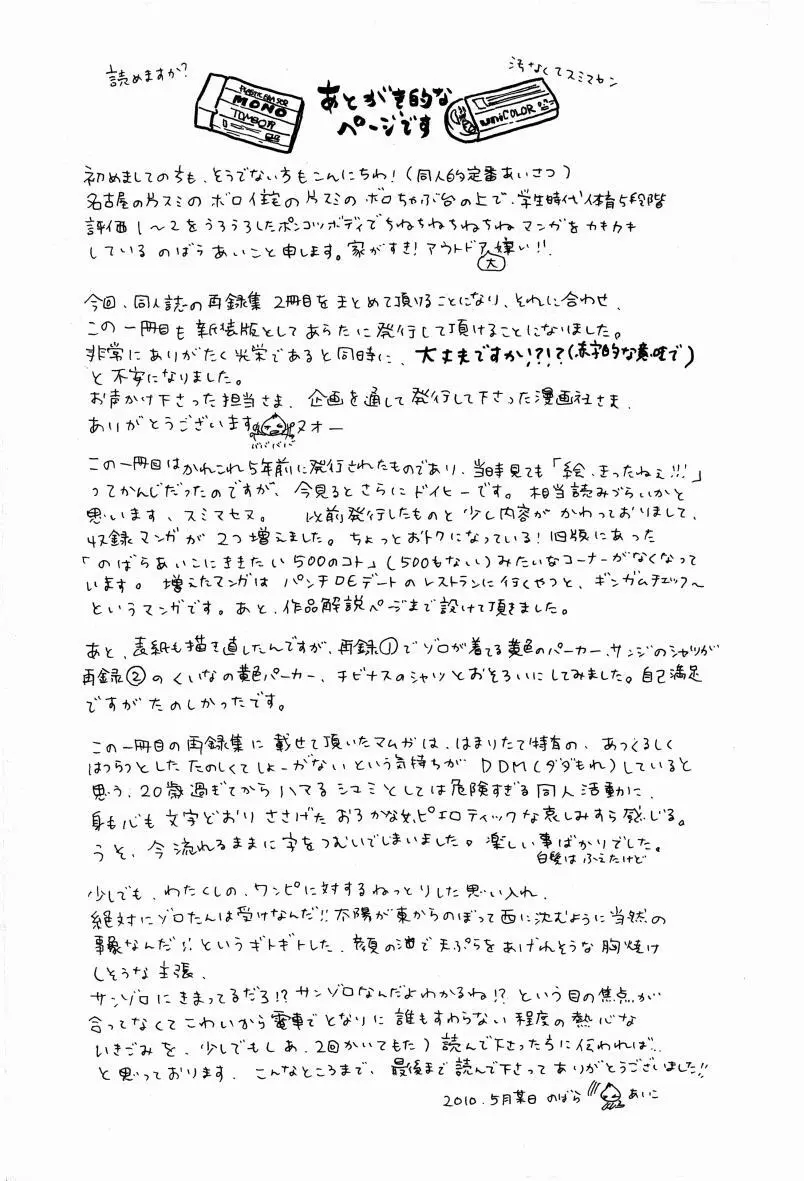 読めますか?
汚なくてスミマセン
PLASTIC ERASER
MONO
TOMBOW
あとがき的な
ページです
uni COLOR
初めましての方も、そうでない方もこんにちわ!(同人的定番あいさつ)
名古屋の片スミのボロ住宅の片スミのボロちゃぶ台の上で、学生時代体育5段階
評価1〜2をうろうろしたポンコツボディでちねちねちねちねマンガをカキカキ
している のばらあいこと申します。家がすき!アウトドア嫌い!!
大
今回、同人誌の再録集 2冊目をまとめて頂けることになり、それに合わせ、
この一冊目も新装版としてあらたに発行して頂けることになりました。
非常にありがたく光栄であると同時に、大丈夫ですか!?!?(赤字的な意味で)
と不安になりました。
お声かけ下さった担当さま、企画を通して発行して下さった漫画社さま、
ありがとうございます ヌオー
バババババ
この一冊目はかれこれ5年前に発行されたものであり、当時見ても「絵、きったねえ!!!」
ってかんじだったのですが、今見るとさらにドイヒーです。相当読みづらいかと
思います、スミマセヌ。 以前発行したものと少し内容がかわっておりまして、
収録マンガが2つ増えました。ちょっとおトクになっている!旧版にあった
「のばらあいこにききたい500のコト」(500もない)みたいなコーナーがなくなって
います。増えたマンガは パンチDEデートのレストランに行くやつと、ギンガムチェック〜
というマンガです。あと、作品解説ページまで設けて頂きました。
あと、表紙も描き直したんですが、再録①でゾロが着てる黄色のパーカー、サンジのシャツが
再録②のくいなの黄色パーカー、チビナスのシャツとおそろいにしてみました。自己満足
ですがたのしかったです。
この一冊目の再録集に載せて頂いたマムガは、はまりたて特有の、あつくるしく
はつらつとした たのしくてしょーがないという気持ちが DDM(ダダもれ)していると
思う、20歳過ぎてからハマるシュミとしては危険すぎる同人活動に、
身も心も文字どおりささげた おろかな女、ピエロティックな哀しみすら感じる。
うそ、今流れるままに字をつむいでしまいました。楽しい事ばかりでした。
白髪はふえたけど
少しでも、わたくしの、ワンピに対するねっとりした思い入れ、
絶対にゾロたんは受けなんだ!!太陽が東からのぼって西に沈むように当然の
事象なんだ!!というギトギトした、顔の油で天ぷらをあげれそうな胸焼け
しそうな主張、
サンゾロにきまってるだろ!?サンゾロなんだよわかるね!?という目の焦点が
合ってなくてこわいから電車でとなりに誰もすわらない程度の熱心な
いきごみを、少しでも(あ、2回かいてもた)読んで下さった方に伝われば…
と思っております。こんなところまで、最後まで読んで下さってありがとうございました!!
2010.5月某日 のばら あいこ